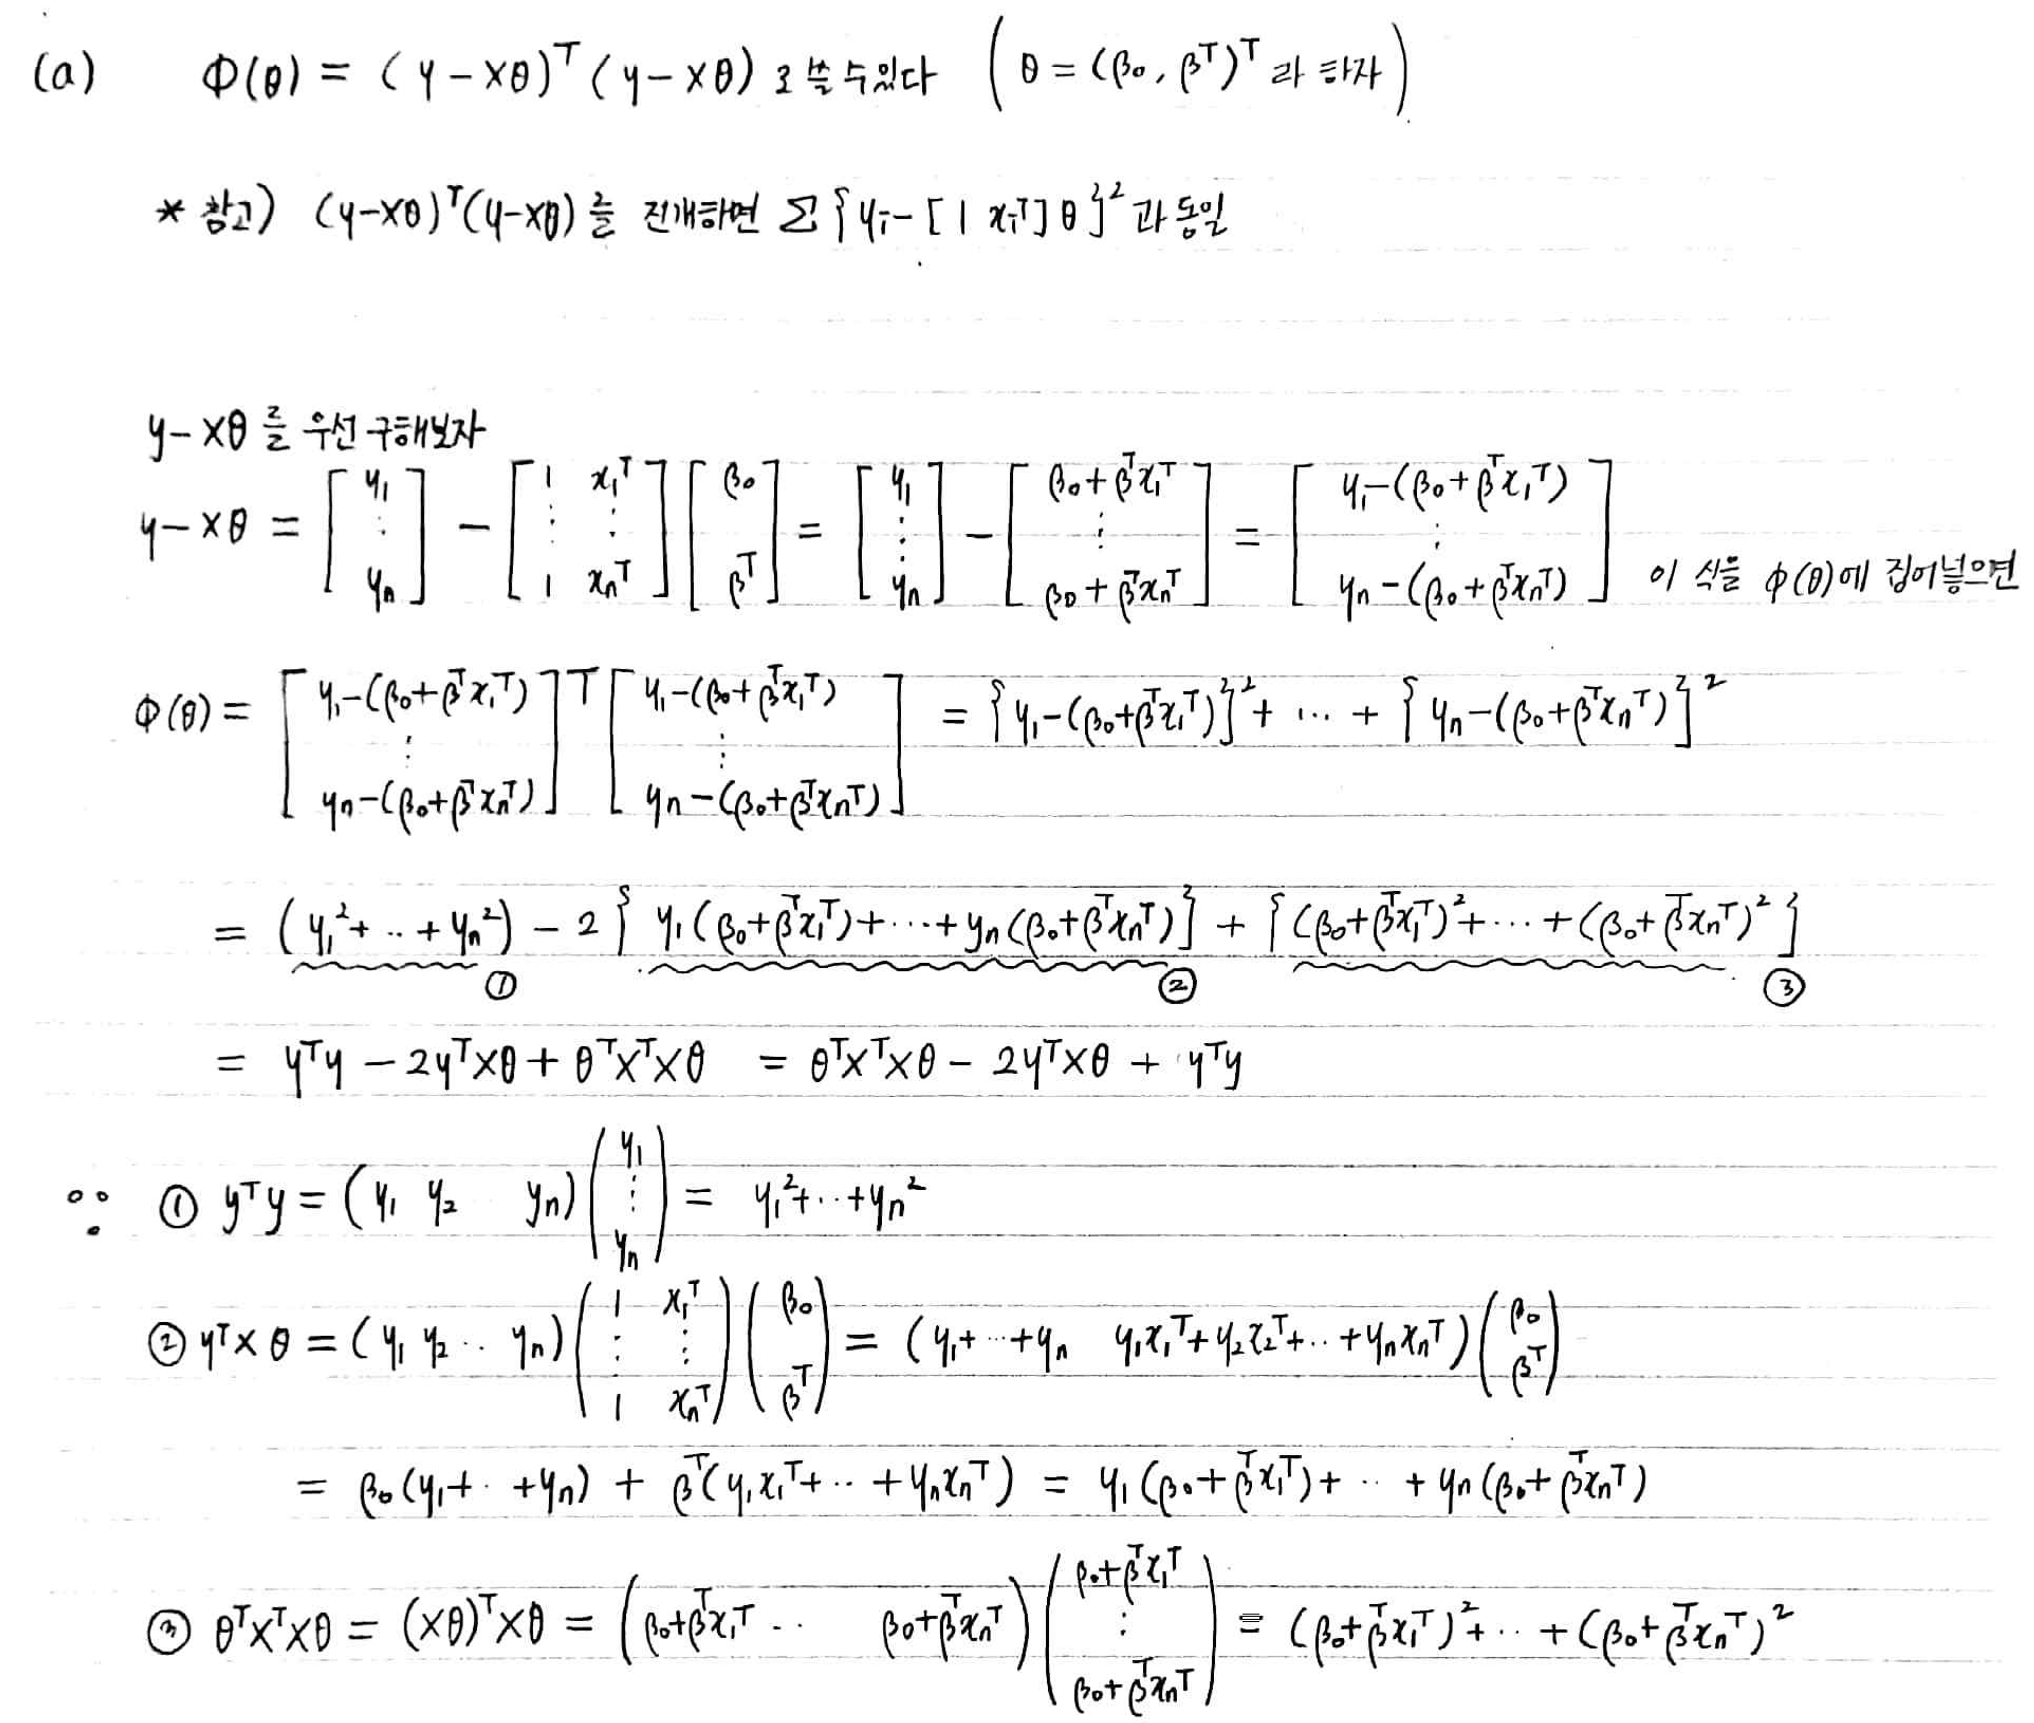 (a) Φ(θ) = (y − Xθ)ᵀ(y − Xθ) 로 쓸 수 있다 (θ = (β₀, βᵀ)ᵀ 라 하자)
* 참고) (y−Xθ)ᵀ(y−Xθ)를 전개하면 Σ{yᵢ − [1 xᵢᵀ]θ}² 과 동일
y−Xθ를 우선 구해보자
y−Xθ = [y₁ ⋮ yₙ] − [1 x₁ᵀ ⋮ ⋮ 1 xₙᵀ][β₀ βᵀ] = [y₁ ⋮ yₙ] − [β₀+βᵀx₁ᵀ ⋮ β₀+βᵀxₙᵀ] = [y₁−(β₀+βᵀx₁ᵀ) ⋮ yₙ−(β₀+βᵀxₙᵀ)] 이 식을 φ(θ)에 집어넣으면
Φ(θ) = [y₁−(β₀+βᵀx₁ᵀ) ⋮ yₙ−(β₀+βᵀxₙᵀ)]ᵀ[y₁−(β₀+βᵀx₁ᵀ) ⋮ yₙ−(β₀+βᵀxₙᵀ)] = {y₁−(β₀+βᵀx₁ᵀ)}² + ... + {yₙ−(β₀+βᵀxₙᵀ)}²
= (y₁²+..+yₙ²) − 2{y₁(β₀+βᵀx₁ᵀ)+...+yₙ(β₀+βᵀxₙᵀ)} + {(β₀+βᵀx₁ᵀ)²+...+(β₀+βᵀxₙᵀ)²}
① ② ③
= yᵀy − 2yᵀXθ + θᵀXᵀXθ = θᵀXᵀXθ − 2yᵀXθ + yᵀy
∵ ① yᵀy = (y₁ y₂ yₙ)(y₁ ⋮ yₙ) = y₁²+..+yₙ²
② yᵀXθ = (y₁ y₂ .. yₙ)(1 x₁ᵀ ⋮ ⋮ 1 xₙᵀ)(β₀ βᵀ) = (y₁+...+yₙ y₁x₁ᵀ+y₂x₂ᵀ+..+yₙxₙᵀ)(β₀ βᵀ)
= β₀(y₁+..+yₙ) + βᵀ(y₁x₁ᵀ+..+yₙxₙᵀ) = y₁(β₀+βᵀx₁ᵀ)+ .. + yₙ(β₀+βᵀxₙᵀ)
③ θᵀXᵀXθ = (Xθ)ᵀXθ = (β₀+βᵀx₁ᵀ .. β₀+βᵀxₙᵀ)(β₀+βᵀx₁ᵀ ⋮ β₀+βᵀxₙᵀ) = (β₀+βᵀx₁ᵀ)²+..+(β₀+βᵀxₙᵀ)²